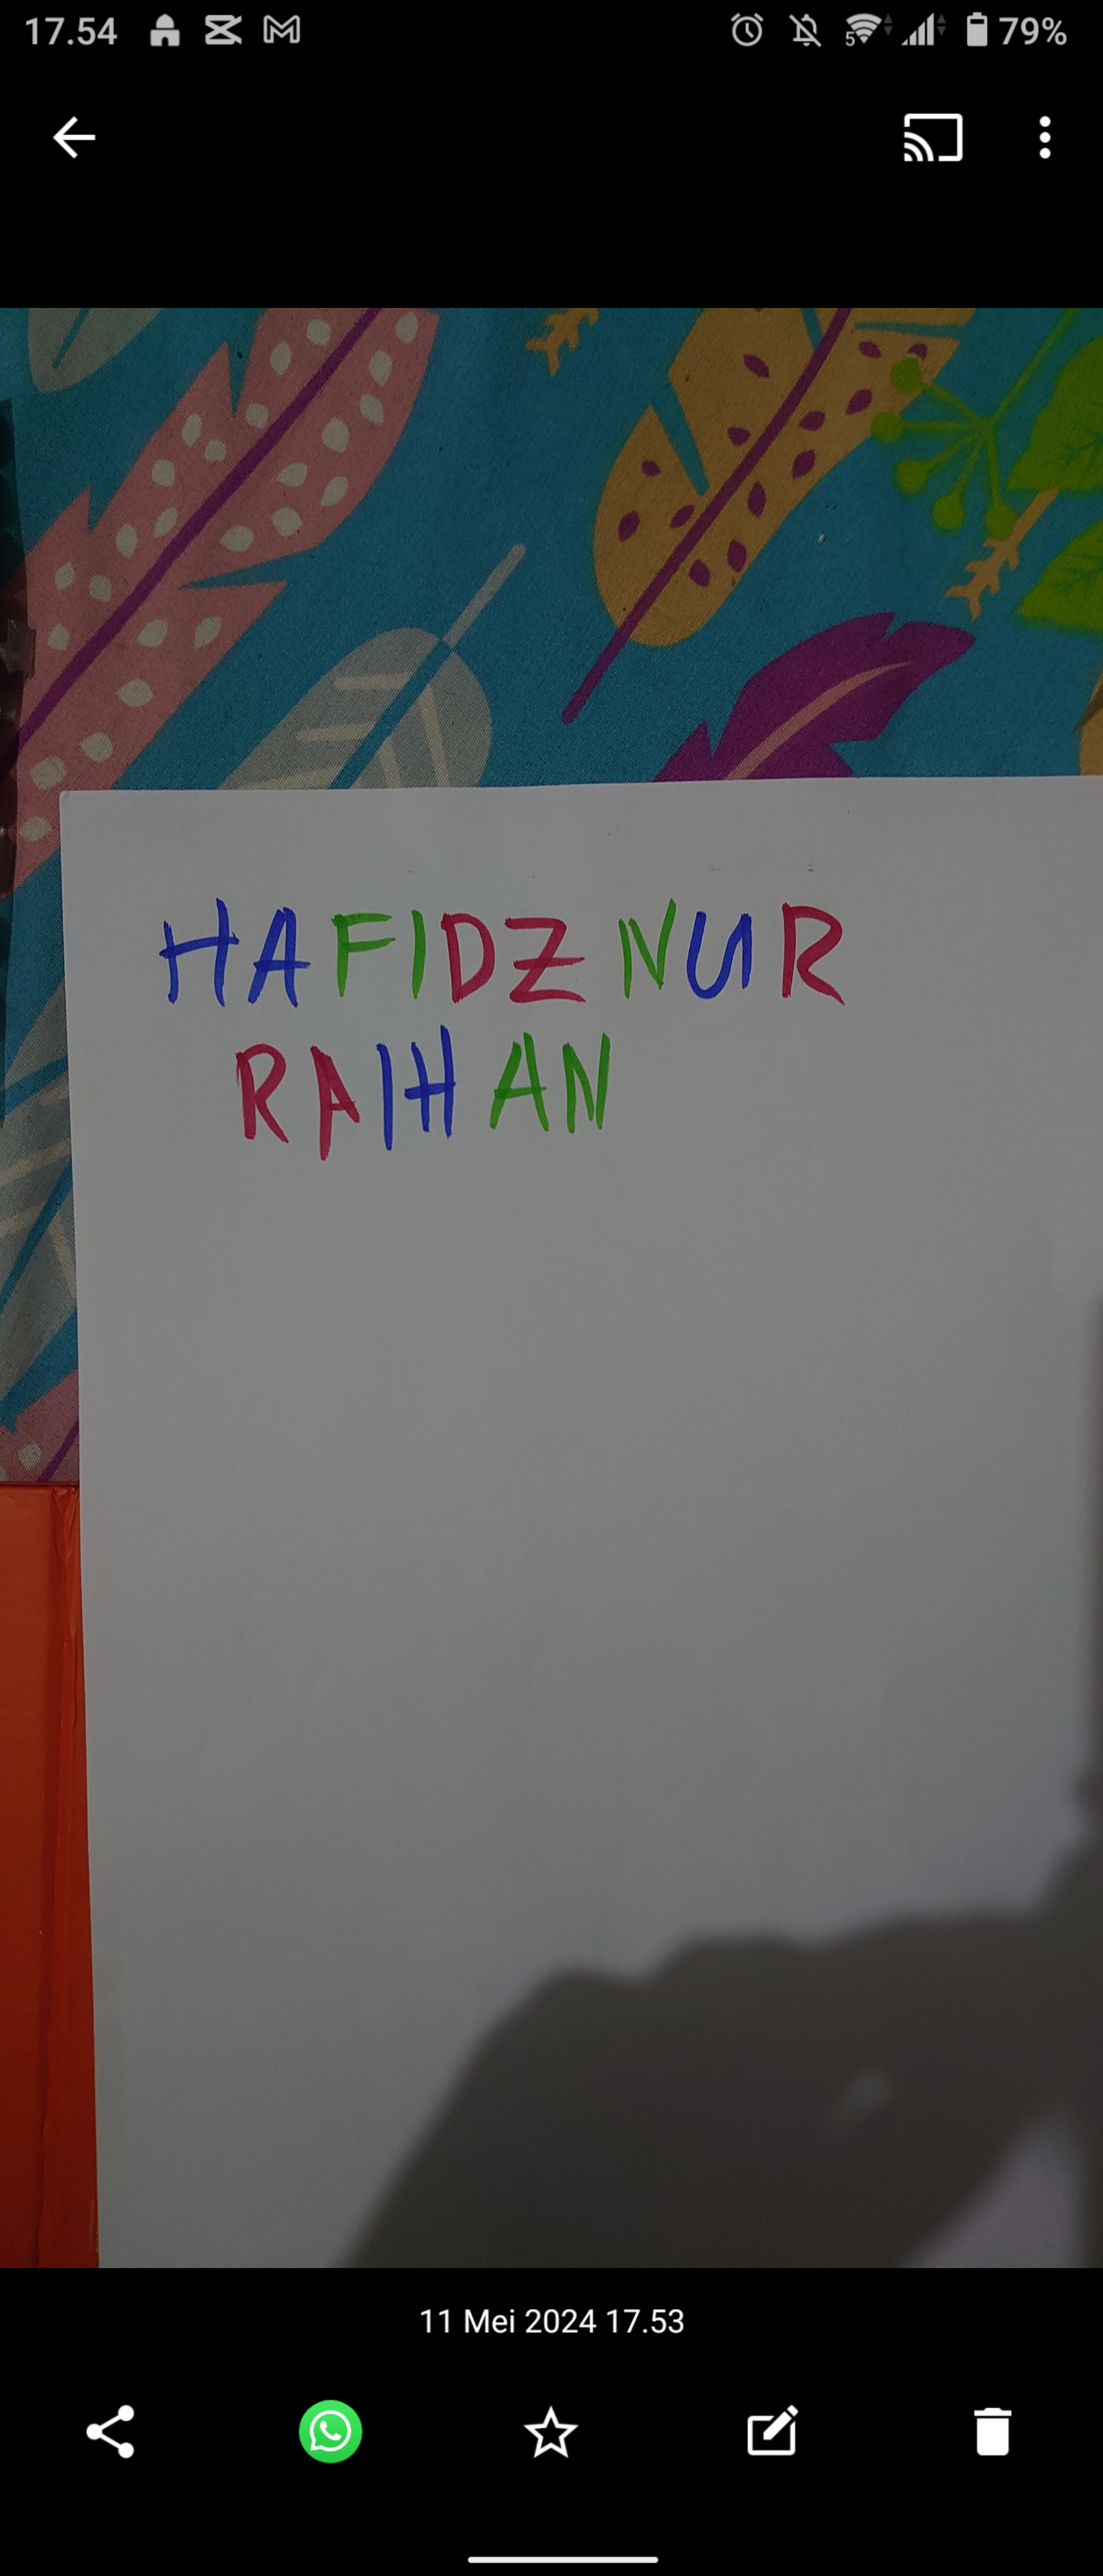 17.54
5
79%
HAFIDZ NUR
RAIHAN
11 Mei 2024 17.53